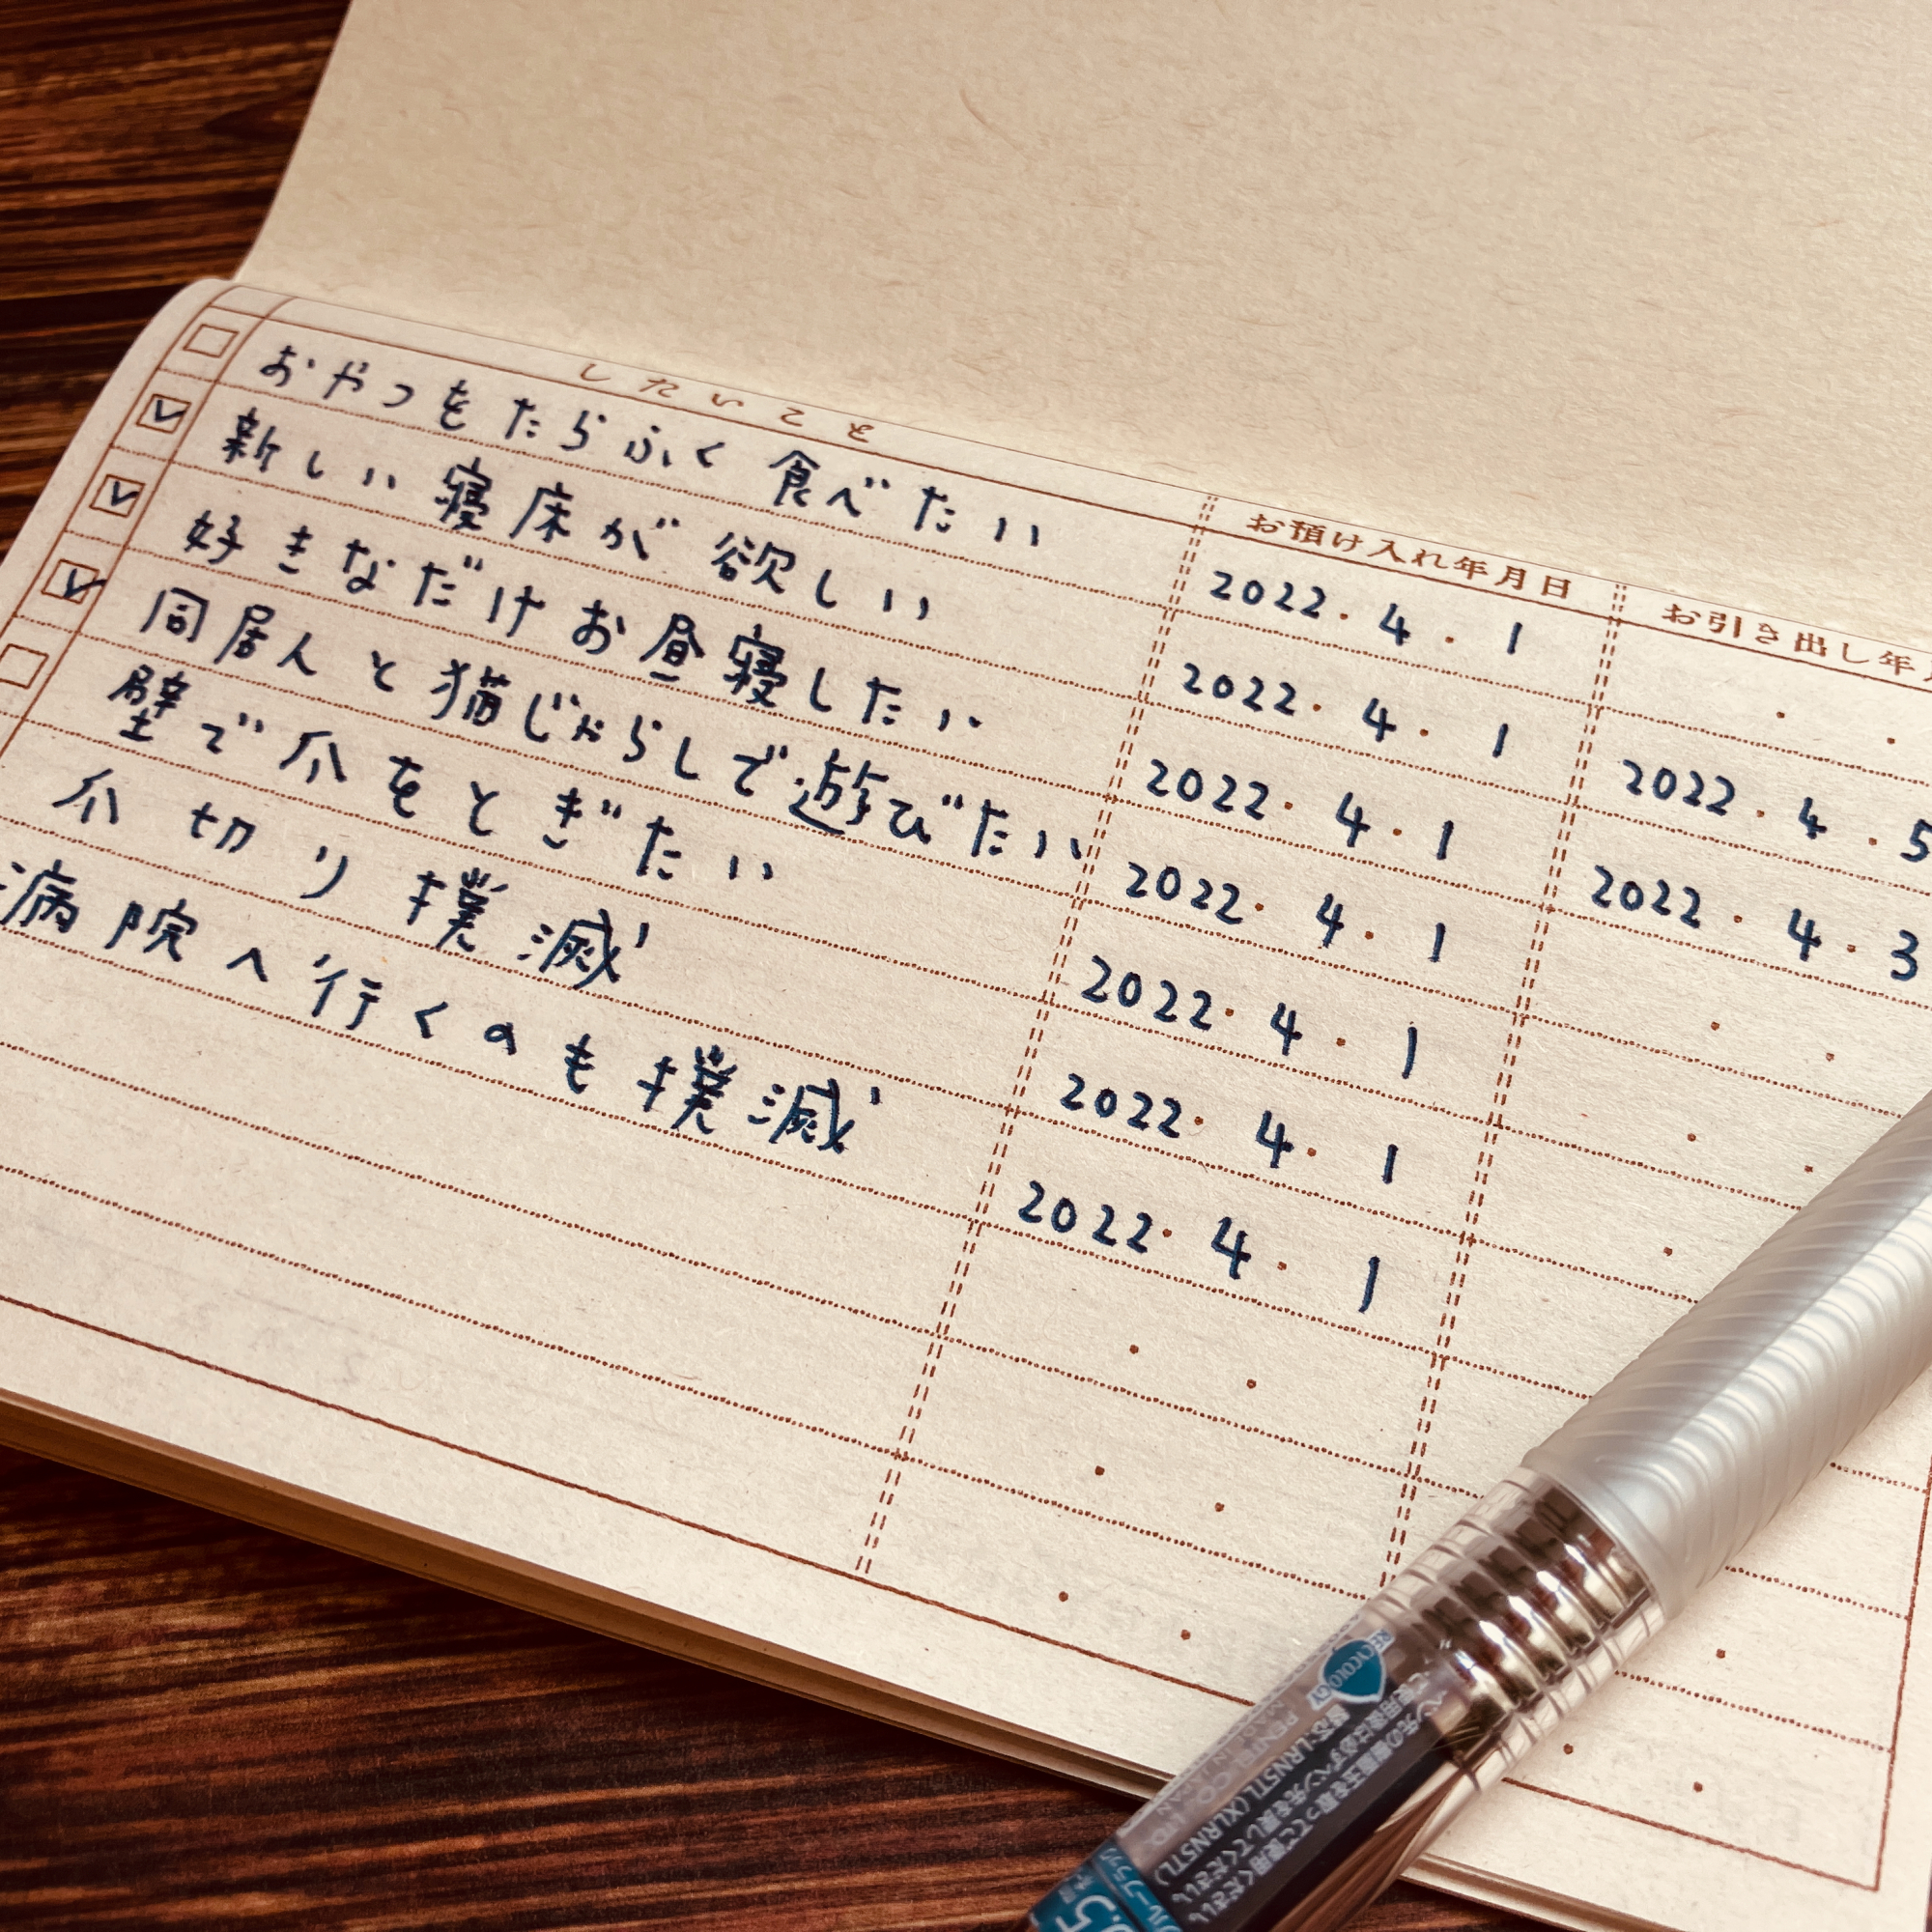 したいこと
お預け入れ年月日
お引き出し年
おやつをたらふく食べたい 2022・4・1
新しい寝床が欲しい 2022・4・1 2022・4・5
好きなだけお昼寝したい 2022・4・1 2022・4・3
同居人と猫じゃらしで遊びたい 2022・4・1
壁で爪をとぎたい 2022・4・1
爪切り撲滅 2022・4・1
病院へ行くのも撲滅 2022・4・1
RECYCOLOGY
LRN5TL(XLRN5TL)